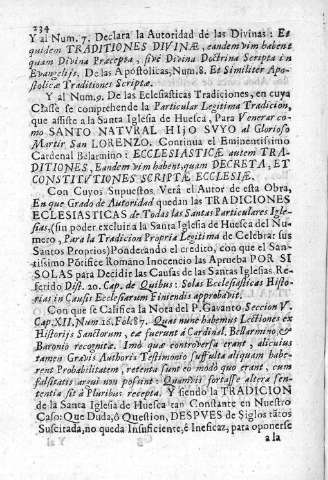 234
Y al Num. 7. Declara la Autoridad de las Divinas: Et
quidem TRADITIONES DIVINÆ, eandem vim habent
quam Divina Præcepta, sivè Divina Doctrina Scripta in
Evangelijs. De las Apostolicas, Num. 8. Et Similiter Apo-
stolicæ Traditiones Scriptæ.
Y al Num. 9. De las Eclesiasticas Tradiciones, en cuya
Classe se comprehende la Particular Legitima Tradicion,
que assiste a la Santa Iglesia de Huesca, Para Venerar como
SANTO NATVRAL HIJO SVYO al Glorioso
Martir San LORENZO. Continua el Eminentissimo
Cardenal Belarmino: ECCLESIASTICÆ autem TRA-
DITIONES, Eandem vim habent, quam DECRETA, ET
CONSTITVTIONES SCRIPTÆ ECCLESIÆ.
Con Cuyos Supuestos Verá el Autor de esta Obra,
En que Grado de Autoridad quedan las TRADICIONES
ECLESIASTICAS de Todas las Santas Particulares Igle-
sias, (sin poder excluir a la Santa Iglesia de Huesca del Nu-
mero, Para la Tradicion Propria Legitima de Celebrar sus
Santos Proprios) Ponderando el credito, con que el San-
tissimo Pōtifice Romano Inocencio las Aprueba POR SI
SOLAS para Decidir las Causas de las Santas Iglesias. Re-
ferido Dist. 20. Cap. de Quibus: Solas Ecclesiasticas Histo-
rias in Causis Ecclesiarum Finiendis approbavit.
Con que se Califica la Nota del P. Gavanto Seccion V.
Cap. XII. Num 16. Fol. 87. Quas nunc habemus Lectiones ex
Historijs Sanctorum, eæ fuerunt à Cardinal. Bellarmino, &
Baronio recognitæ. Imò quæ controversa erant, alicuius
tamen Gravis Authoris Testimonio suffulta aliquam habe-
rent Probabilitatem, retenta sunt eo modo quo erant, cum
falsitatis argui non possint: Quamvis fortasse altera sen-
tentia sit à Pluribus recepta. Y siendo la TRADICION
de la Santa Iglesia de Huesca tan Constante en Nuestro
Caso: Que Duda, ò Question, DESPVES de Siglos tātos
Suscitada, no queda Insuficiente, è Ineficaz, para oponerse
a la